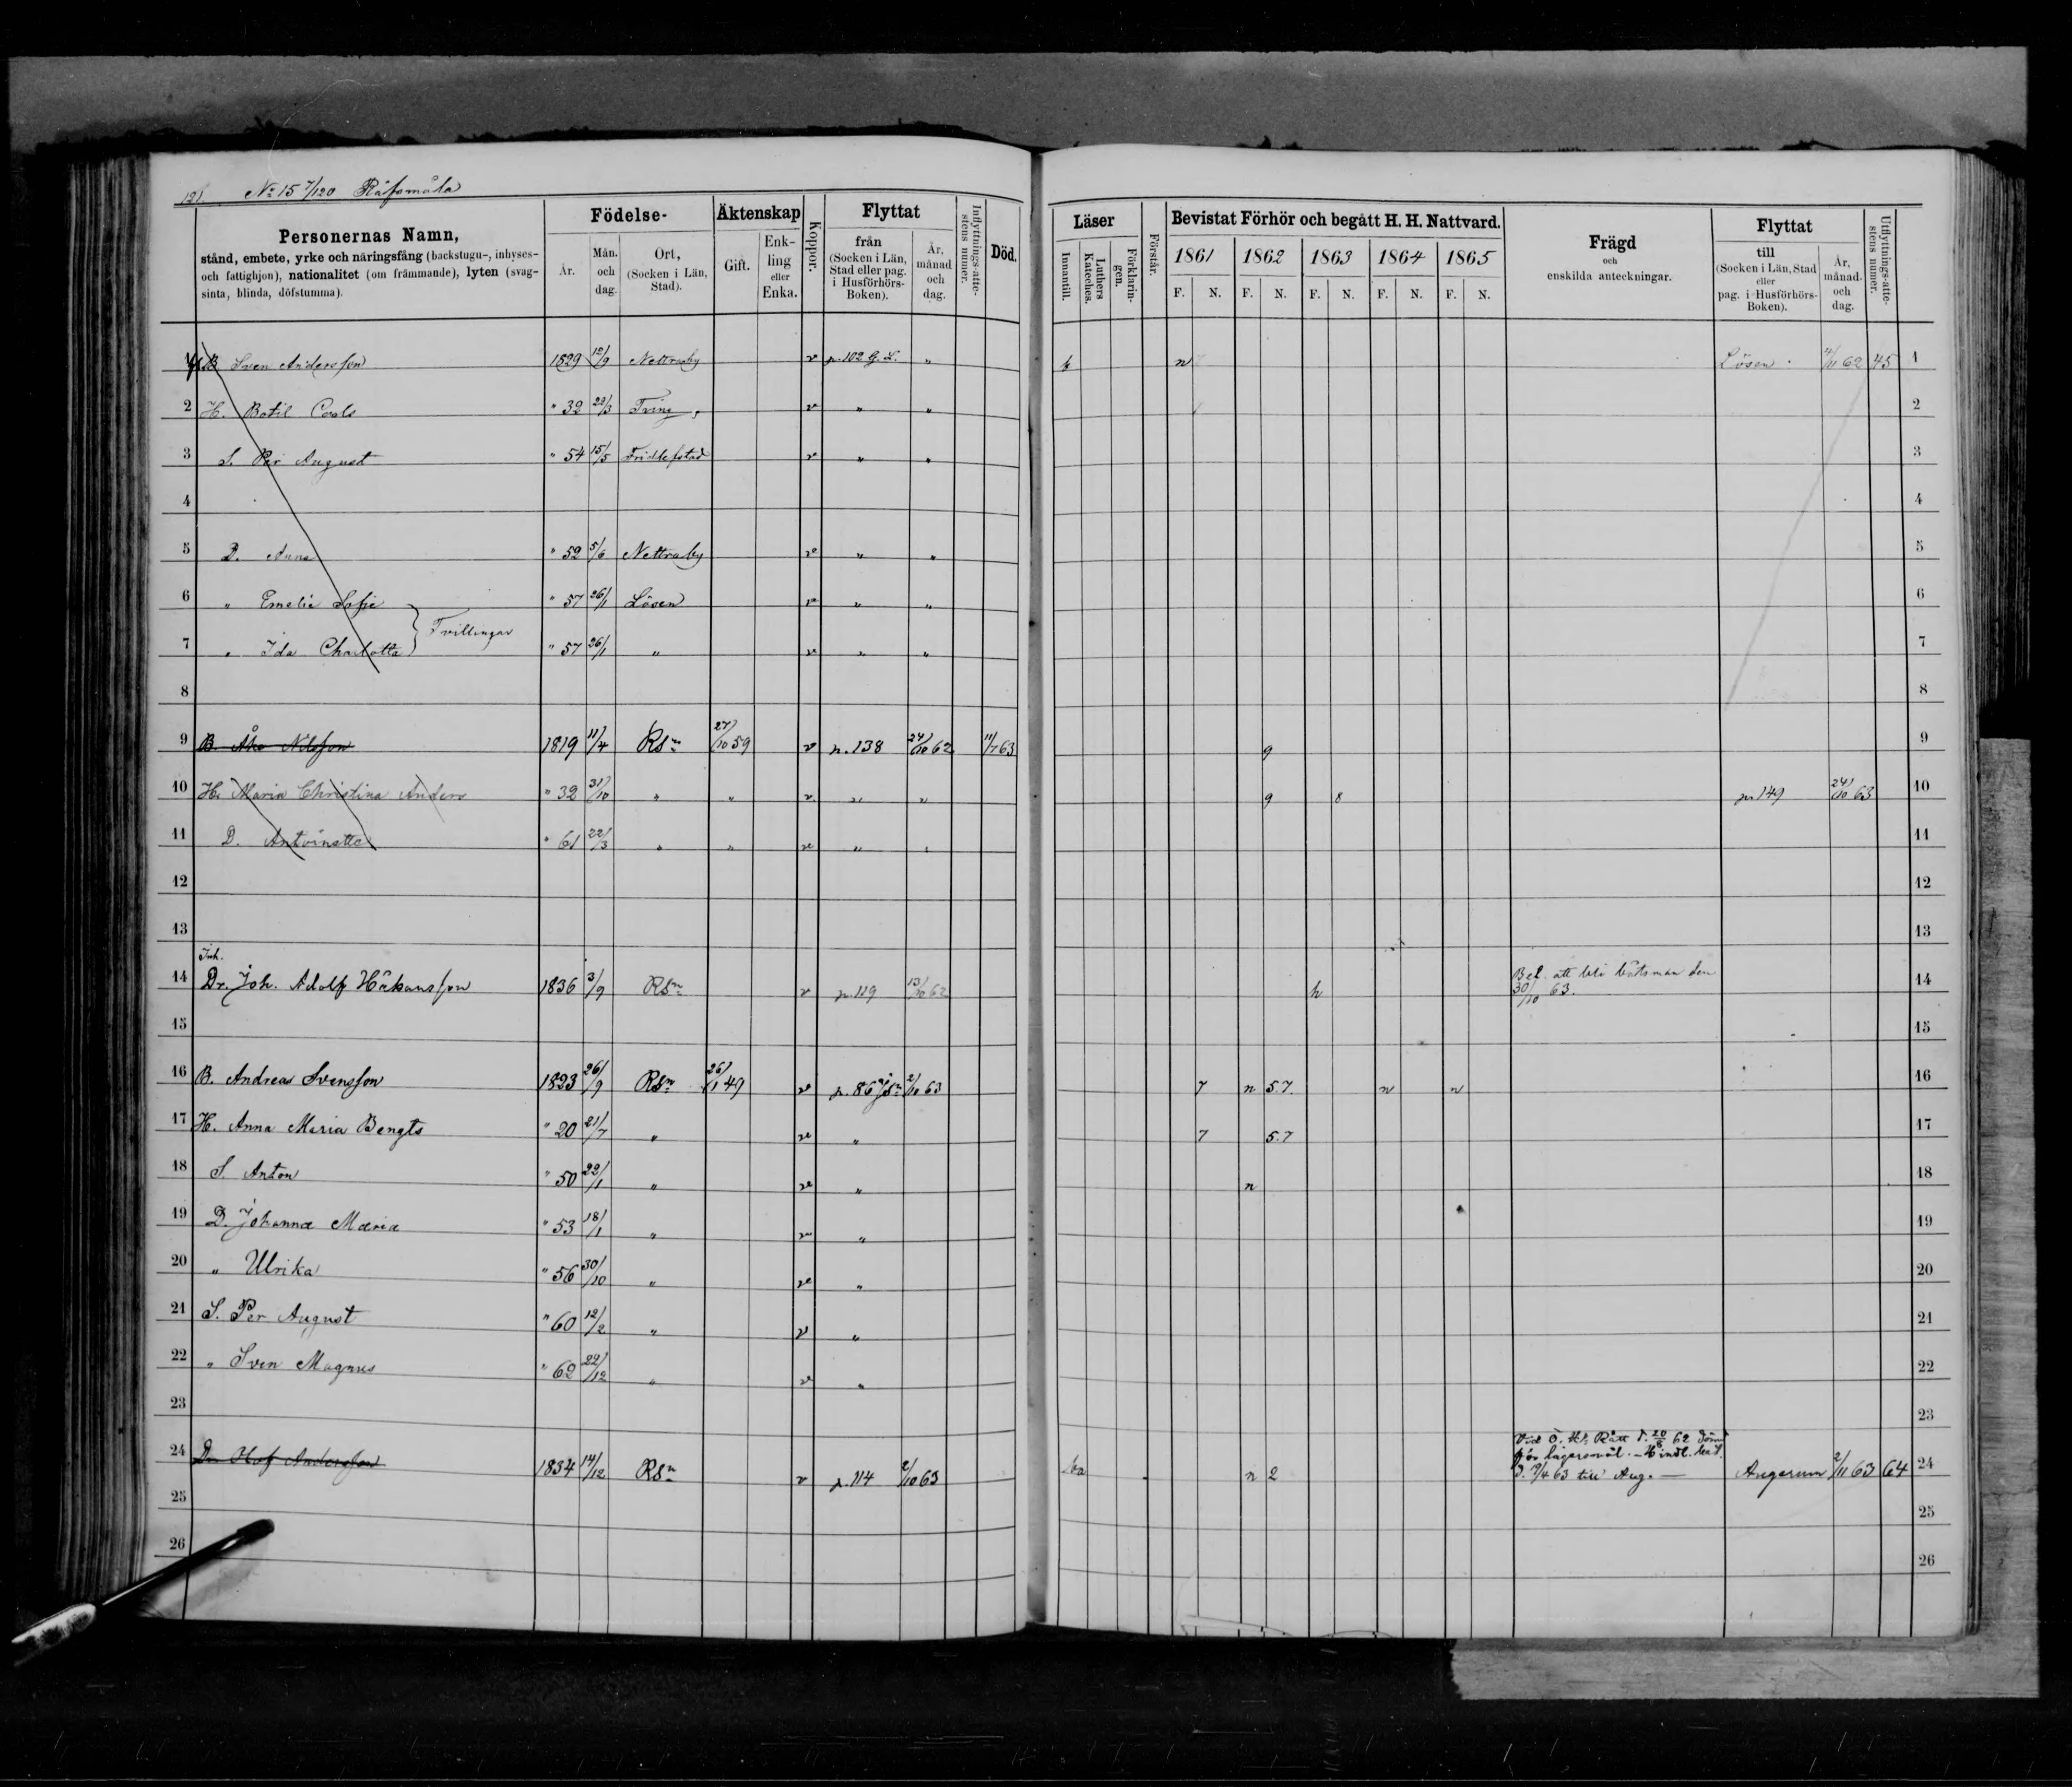 121. No 15 7/120 Räfsmåla
Personernas Namn,
stånd, embete, yrke och näringsfång (backstugu-, inhyses-
och fattighjon), nationalitet (om främmande), lyten (svag-
sinta, blinda, döfstumma).
Födelse-
År. Mån. och dag. Ort, (Socken i Län, Stad).
Äktenskap
Gift. Enk-ling eller Enka.
Koppor.
Flyttat
från (Socken i Län, Stad eller pag. i Husförhörs-Boken). År, månad och dag.
Inflyttnings-atte-stens numer.
Död.
Läser
Innantill. Luthers Kateches. Förklarin-gen.
Förstår.
Bevistat Förhör och begått H. H. Nattvard.
1861 1862 1863 1864 1865
F. N. F. N. F. N. F. N. F. N.
Frägd
och
enskilda anteckningar.
Flyttat
till (Socken i Län, Stad eller pag. i Husförhörs-Boken). År, månad och dag.
Utflyttnings-atte-stens numer.
1 B Sven Andersson 1829 12/9 Nettraby v p. 102 G. L. " b n Lösen 4/11 62 45 1
2 H. Botil Carls " 32 22/3 Tving v " " 2
3 S. Per August " 54 15/5 Fridlefstad v " " 3
4 4
5 D. Anna " 52 5/6 Nettraby v " " 5
6 " Emelie Sofie " 57 26/1 Lösen v " " 6
Tvillingar
7 " Ida Charlotta " 57 26/1 " v " " 7
8 8
9 B. Åke Nilsson 1819 11/4 Rsn 27/10 59 v p. 138 24/10 62 11/7 63 9 9
10 H. Maria Christina Anders " 32 31/10 " " v " " 9 8 p. 149 24/10 63 10
11 D. Antoinette " 61 22/3 " " v " " 11
12 12
13 13
Inh.
14 Dr. Joh. Adolf Håkansson 1836 3/9 Rsn v p. 119 13/10 62 h Bet. att bli båtsman den
30/10 63. 14
15 15
16 B. Andreas Svensson 1823 26/9 Rsn 26/1 49 v p. 86 2/10 63 7 n 5.7. n n 16
17 H. Anna Maria Bengts " 20 21/7 " v " 7 5.7 17
18 S. Anton " 50 22/1 " v " n 18
19 D. Johanna Maria " 53 18/1 " v " 19
20 " Ulrika " 56 30/10 " v " 20
21 S. Per August " 60 12/2 " v " 21
22 " Sven Magnus " 62 22/12 " v " 22
23 23
Vid Ö. Hds Rätt d. 20/8 62 dömd
för lägersmål.
24 Dr Olof Andersson 1834 14/12 Rsn v p. 114 2/10 63 ba n 2 d. 9/4 63 till Aug. — Angerum 2/11 63 64 24
25 25
26 26